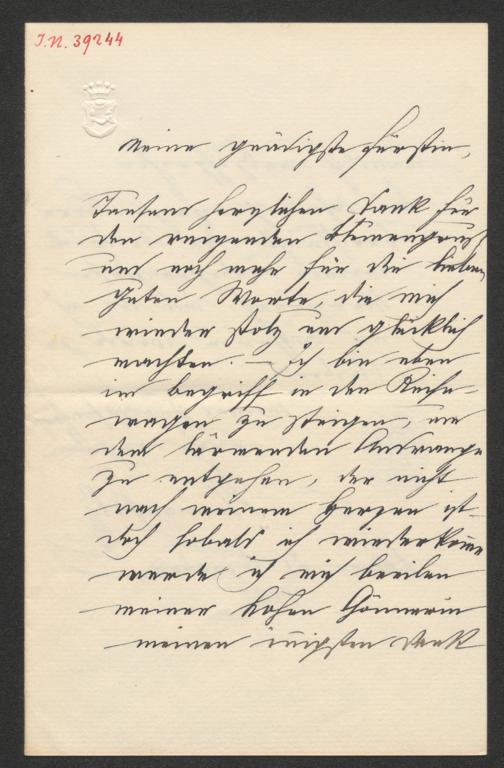 I.N. 39244
Meine gnädigste Fürstin,
Tausend herzlichen Dank für
den reizenden Blumengruß
und noch mehr für die lieben
guten Worte, die mich
wieder stolz und glücklich
machten. – Ich bin eben
im Begriff in den Reise-
wagen zu steigen, um
dem lärmenden Andrange
zu entgehen, der nicht
nach meinem Herzen ist
doch sobald ich wiederkomme
werde ich mich beeilen
meiner hohen Gönnerin
meinen innigsten Dank